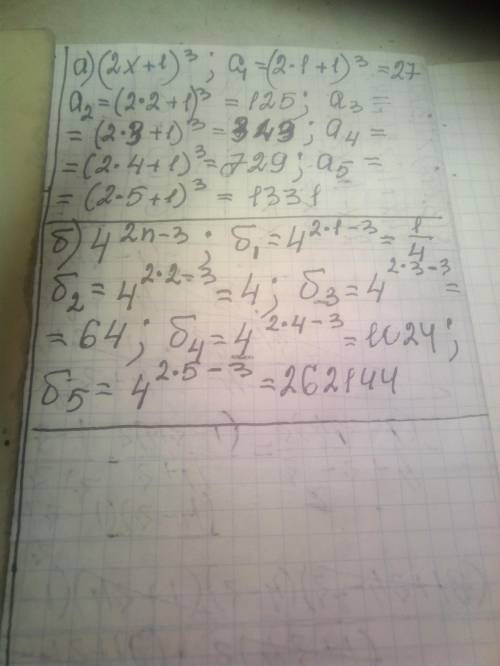 а) (2x+1)³; a₁=(2·1+1)³=27
a₂=(2·2+1)³=125; a₃=
=(2·3+1)³=343; a₄=
=(2·4+1)³=729; a₅=
=(2·5+1)³=1331
б) 4²ⁿ⁻³; б₁=4²·¹⁻³=1/4
б₂=4²·²⁻³=4; б₃=4²·³⁻³=
=64; б₄=4²·⁴⁻³=1024;
б₅=4²·⁵⁻³=262144